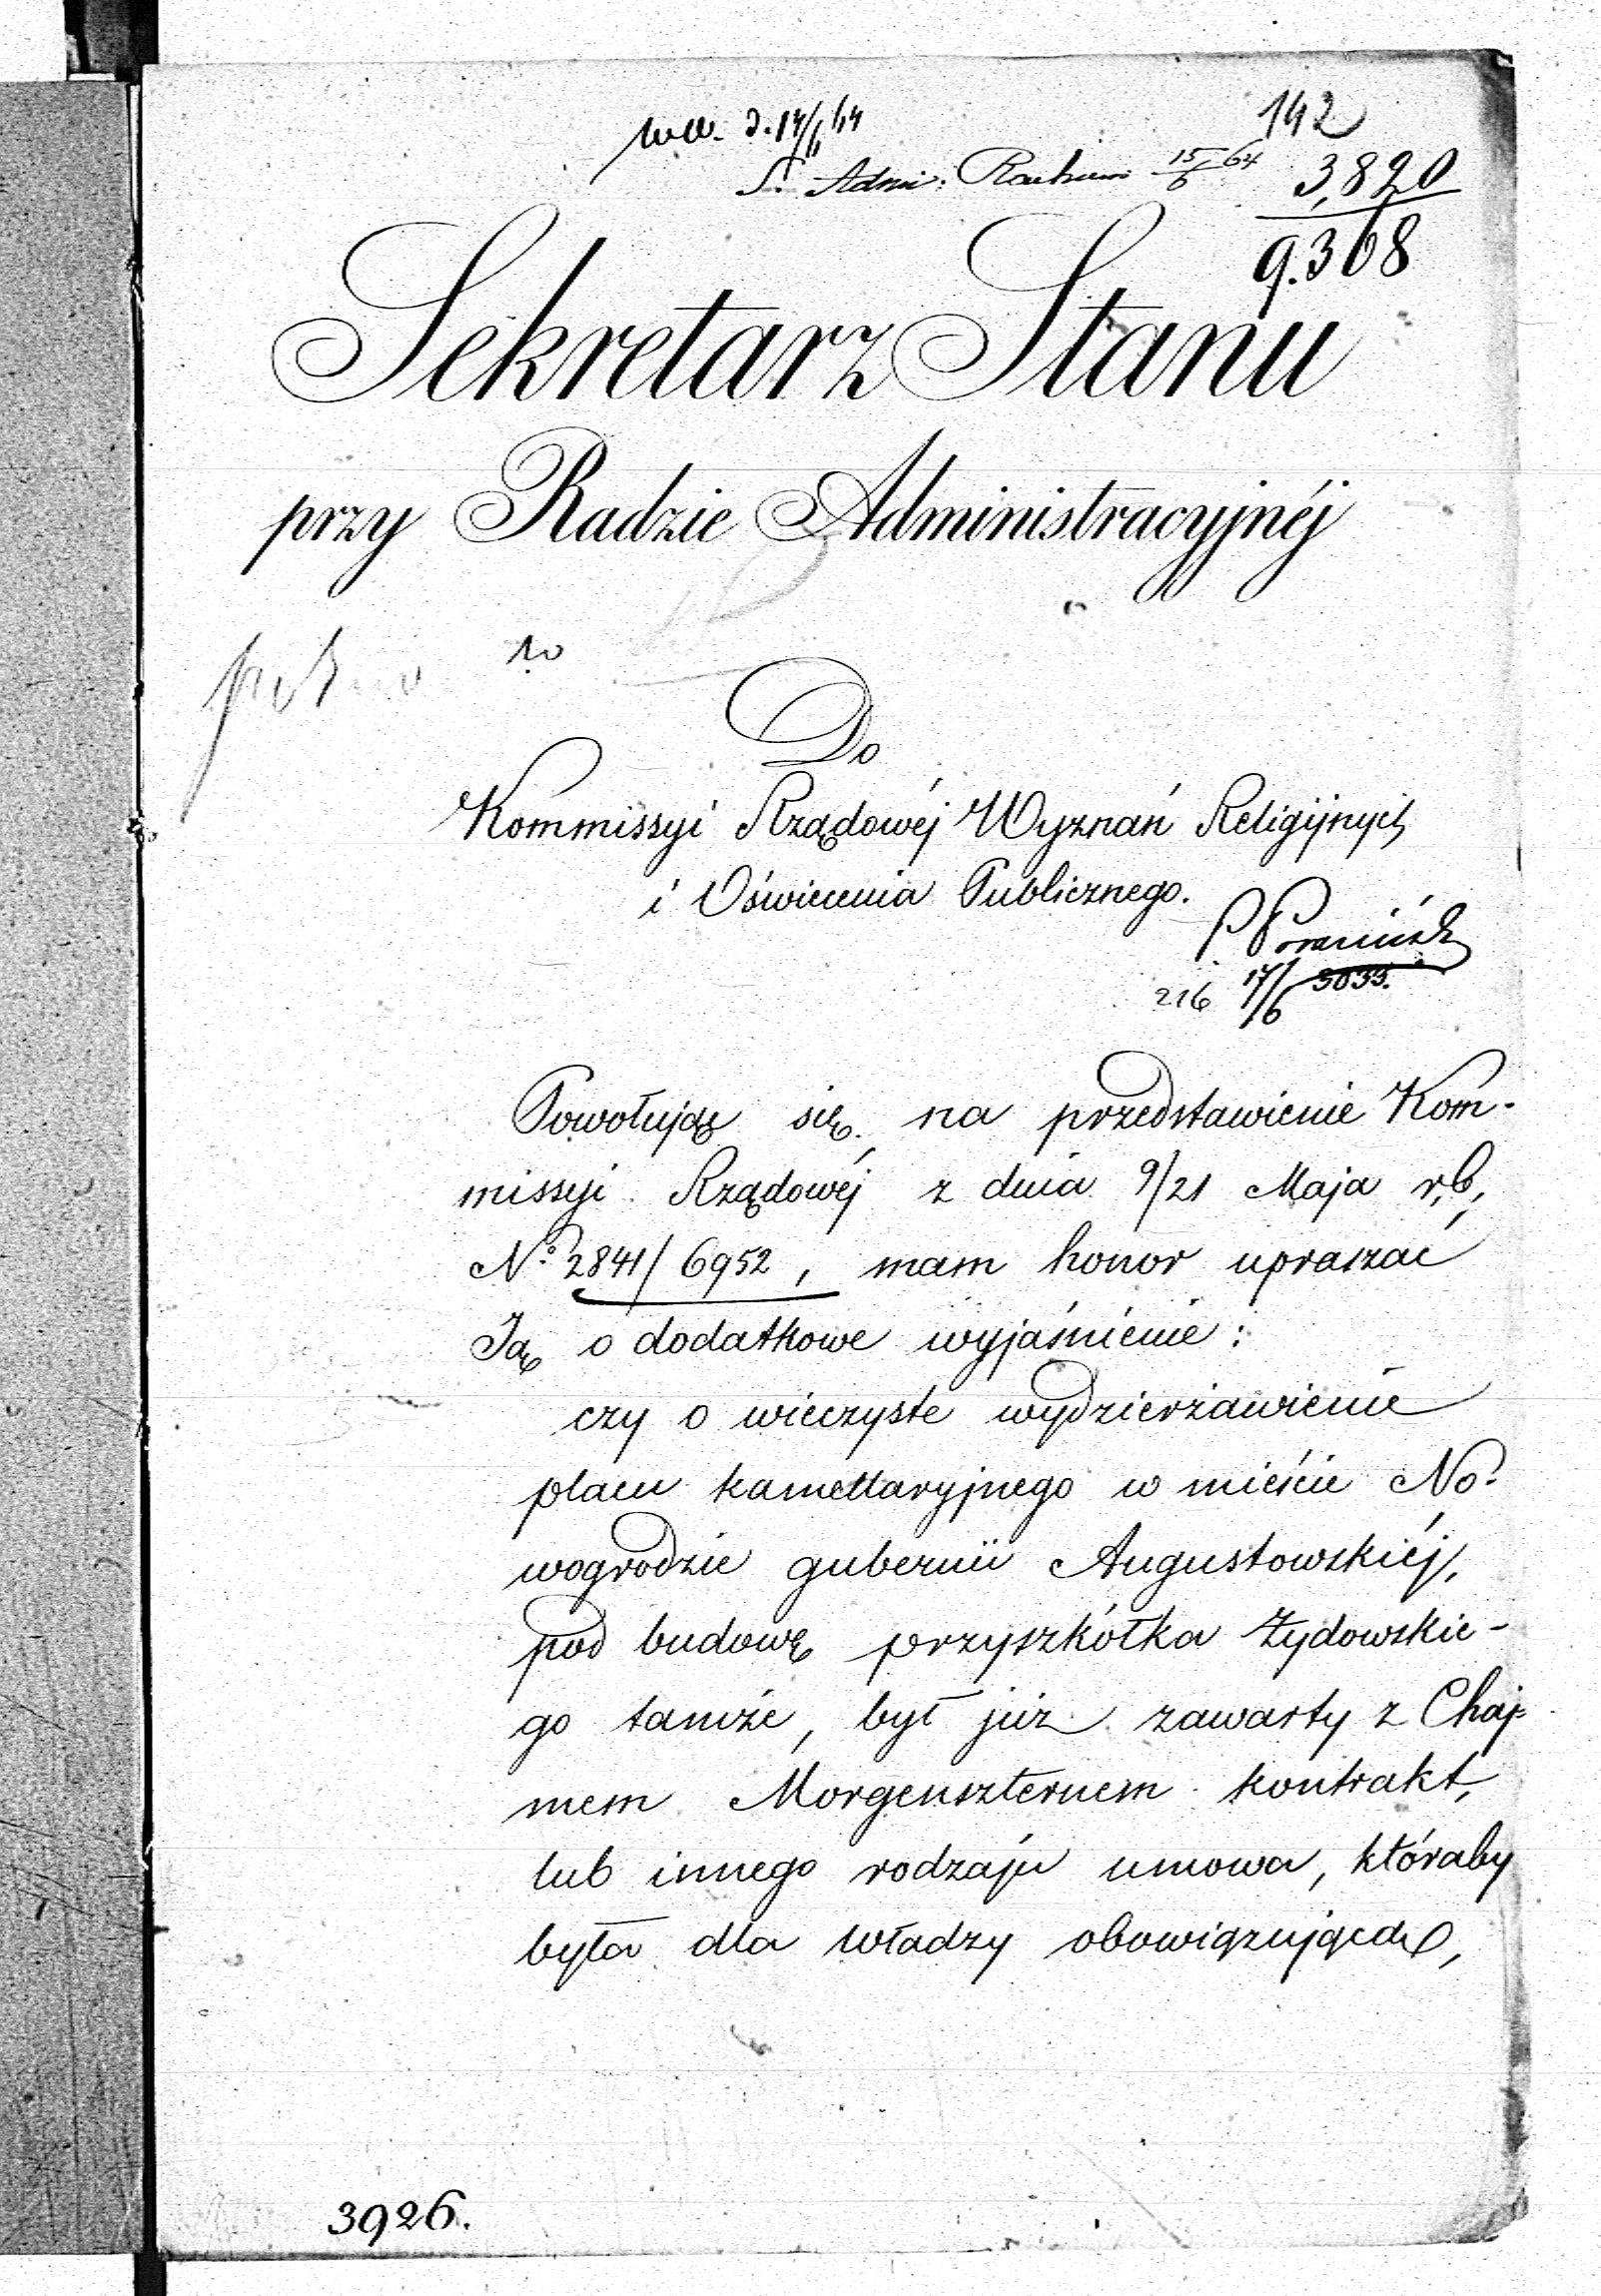 142
ww. d. 14/6 64
S. Adm: 15/6 64 3,820
9.368
Sekretarz Stanu
przy Radzie Administracyjnéj
Do
Kommissyi Rządowéj Wyznań Religijnych
i Oświecenia Publicznego.
216 17/6 3033.
Powołując się na przedstawienie Kom-
missyi Rządowéj z dnia 9/21 Maja r,b,
No. 2841/6952, mam honor upraszać
Ją o dodatkowe wyjaśnienie:
czy o wieczyste wydzierżawienie
placu kamellaryjnego w mieście No-
wogrodzie gubernii Augustowskiéj,
pod budowę przyszkółka Żydowskie-
go tamże, był już zawarty z Chaj-
mem Morgenszternem kontrakt,
lub innego rodzaju umowa, któraby
była dla władzy obowiązującą,
3926.